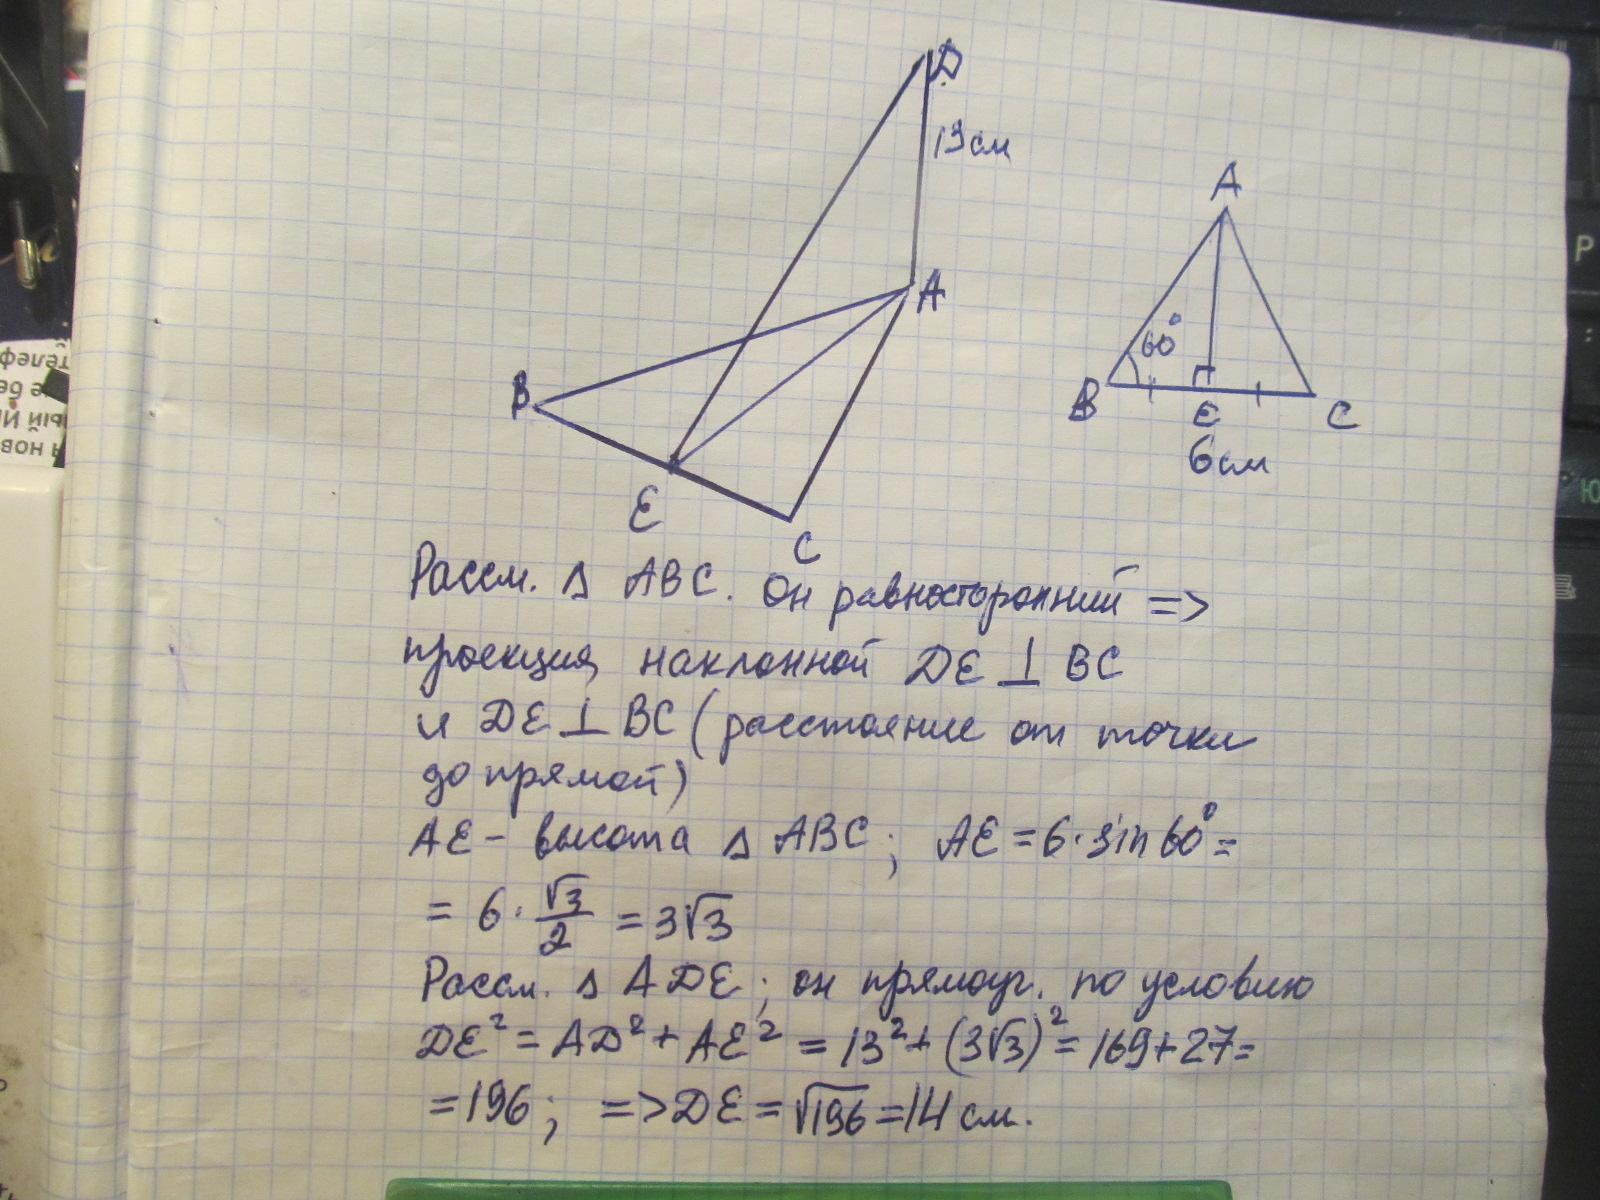 D
13 см
A
B
E
C
A
60°
B
E
C
6 см
Рассм. Δ ABC. Он равносторонний =>
проекция наклонной DE ⊥ BC
и DE ⊥ BC (расстояние от точки
до прямой)
AE - высота Δ ABC; AE = 6·sin 60° =
= 6 · √3/2 = 3√3
Рассм. Δ ADE; он прямоуг. по условию
DE² = AD² + AE² = 13² + (3√3)² = 169 + 27 =
= 196; => DE = √196 = 14 см.
телеф
е бе
ый Й
я нов
Р
:
Ю